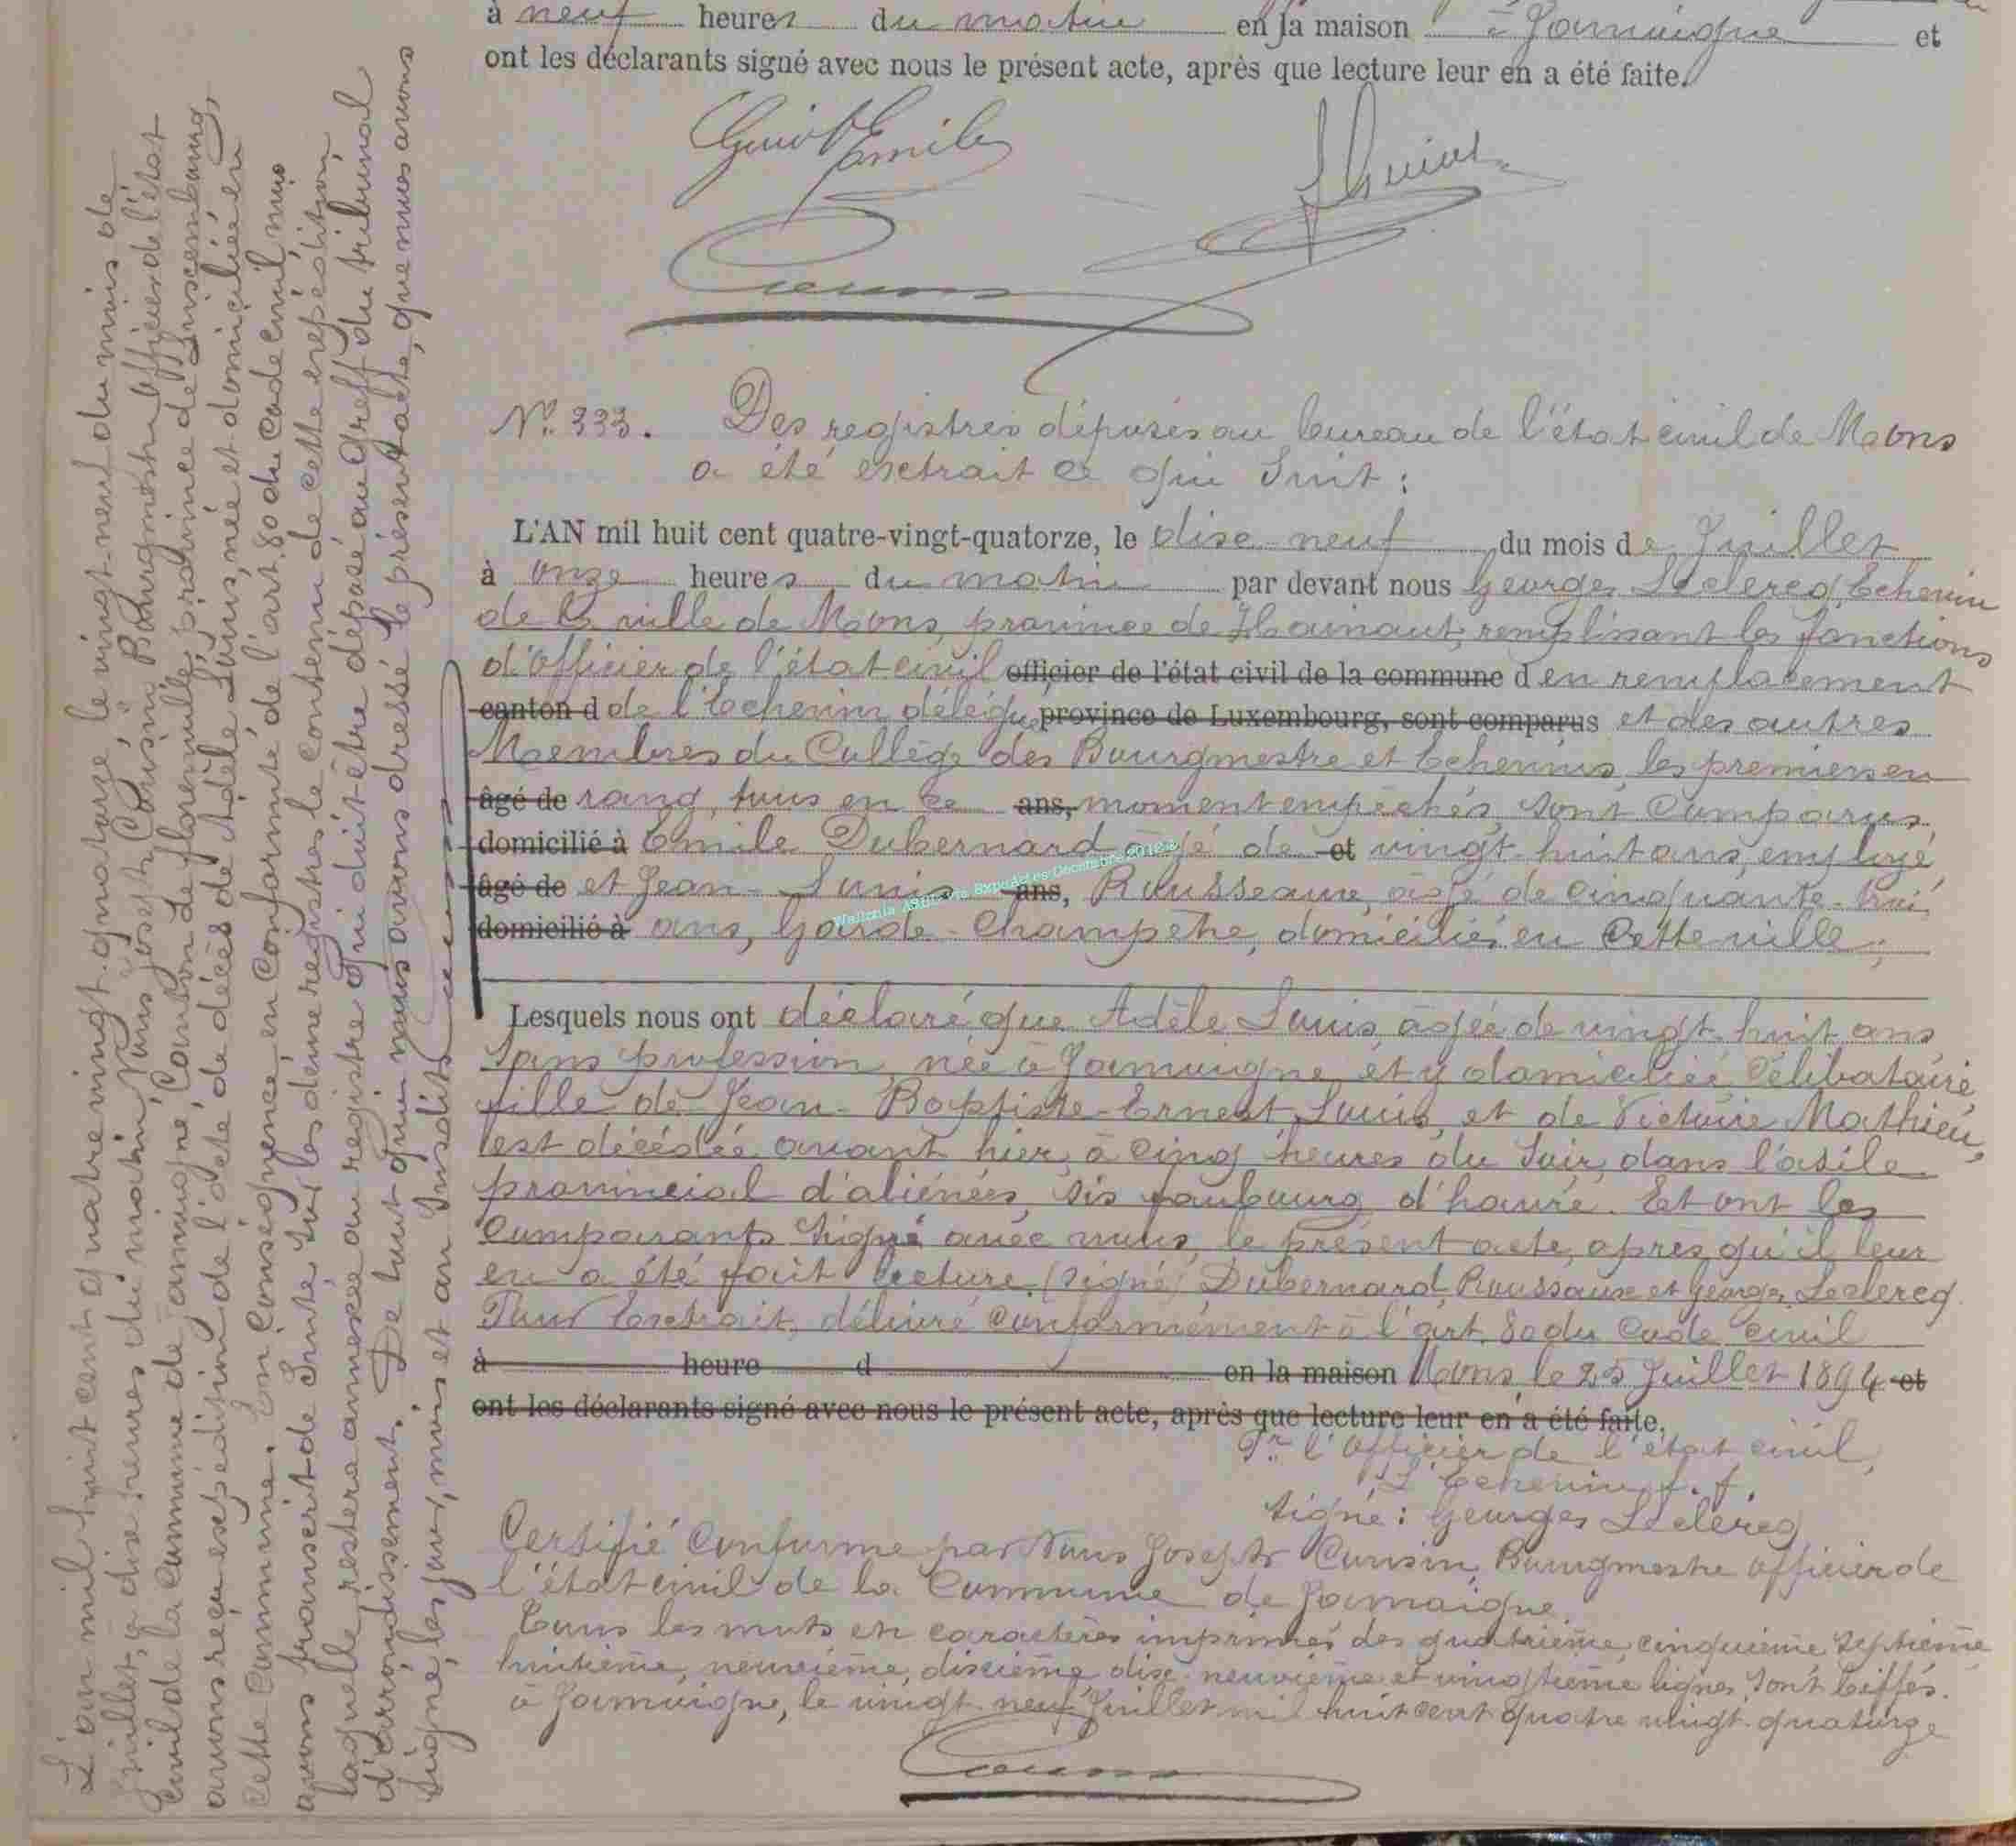 à neuf heures du matin en la maison à Jamoigne et
ont les déclarants signé avec nous le présent acte, après que lecture leur en a été faite.
Guiot Emile
J Guiot
Cousin
N° 333. Des registres déposés au bureau de l'état civil de Mons
a été extrait ce qui suit :
L'AN mil huit cent quatre-vingt-quatorze, le dixe neuf du mois de Juillet
à onze heures du matin par devant nous Georges Leclercq, Echevin
de la ville de Mons, province de Hainaut, remplissant les fonctions
d'officier de l'état civil officier de l'état civil de la commune d en remplacement
canton d de l'Echevin délégué province de Luxembourg, sont comparus et des autres
Membres du Collège des Bourgmestre et Echevins, les premiers en
âgé de rang, tous en ce ans, moment empêchés, sont comparus,
domicilié à Emile Dubernard âgé de et vingt-huit ans, employé
âgé de et Jean-Louis ans, Rousseaux, âgé de cinquante-trois
domicilié à ans, Garde-Champêtre, domiciliés en cette ville ;
Wallonia ASBL Vis ExpoActes Décembre 2018©
Lesquels nous ont déclaré que Adèle Louis, âgée de vingt-huit ans
sans profession, née à Jamoigne et y domiciliée, célibataire,
fille de Jean-Baptiste-Ernest Louis, et de Victoire Mathieu,
est décédée avant hier, à cinq heures du soir, dans l'asile
provincial d'aliénées, sis faubourg d'havré. Et ont les
comparants signé avec nous, le présent acte, après qu'il leur
en a été fait lecture. (signé) Dubernard, Roussaux et Georges Leclercq.
Pour Extrait, délivré conformément à l'art. 80 du Code civil
à heure d en la maison Mons, le 25 Juillet 1894 et
ont les déclarants signé avec nous le présent acte, après que lecture leur en a été faite.
Pr l'officier de l'état civil,
L'Echevin f. f.
signé : Georges Leclercq
Certifié conforme par Nous Joseph Cousin, Bourgmestre officier de
l'état civil de la Commune de Jamoigne.
Tous les mots en caractères imprimés des quatrième, cinquième septième
huitième, neuvième, dixième, dixe-neuvième et vingtième lignes sont biffés.
à Jamoigne, le vingt-neuf Juillet mil huit cent quatre vingt-quatorze
Cousin
L'an mil huit cent quatre vingt-quatorze, le vingt-neuf du mois de
Juillet, à dixe heures du matin, Nous Joseph Cousin Bourgmestre officier de l'état
civil de la commune de Jamoigne, Canton de Florenville, province de Luxembourg,
avons reçu expédition de l'acte de décès de Adèle Louis, née et domiciliée en
cette commune. En conséquence, en conformité de l'art. 80 du code civil nous
avons transcrit de suite sur les deux registres le contenu de cette expédition,
laquelle restera annexée au registre qui doit être déposé au Greffe du tribunal
d'arrondissement. De tout quoi nous avons dressé le présent acte, que nous avons
signé, les jour, mois et an susdits
Cousin